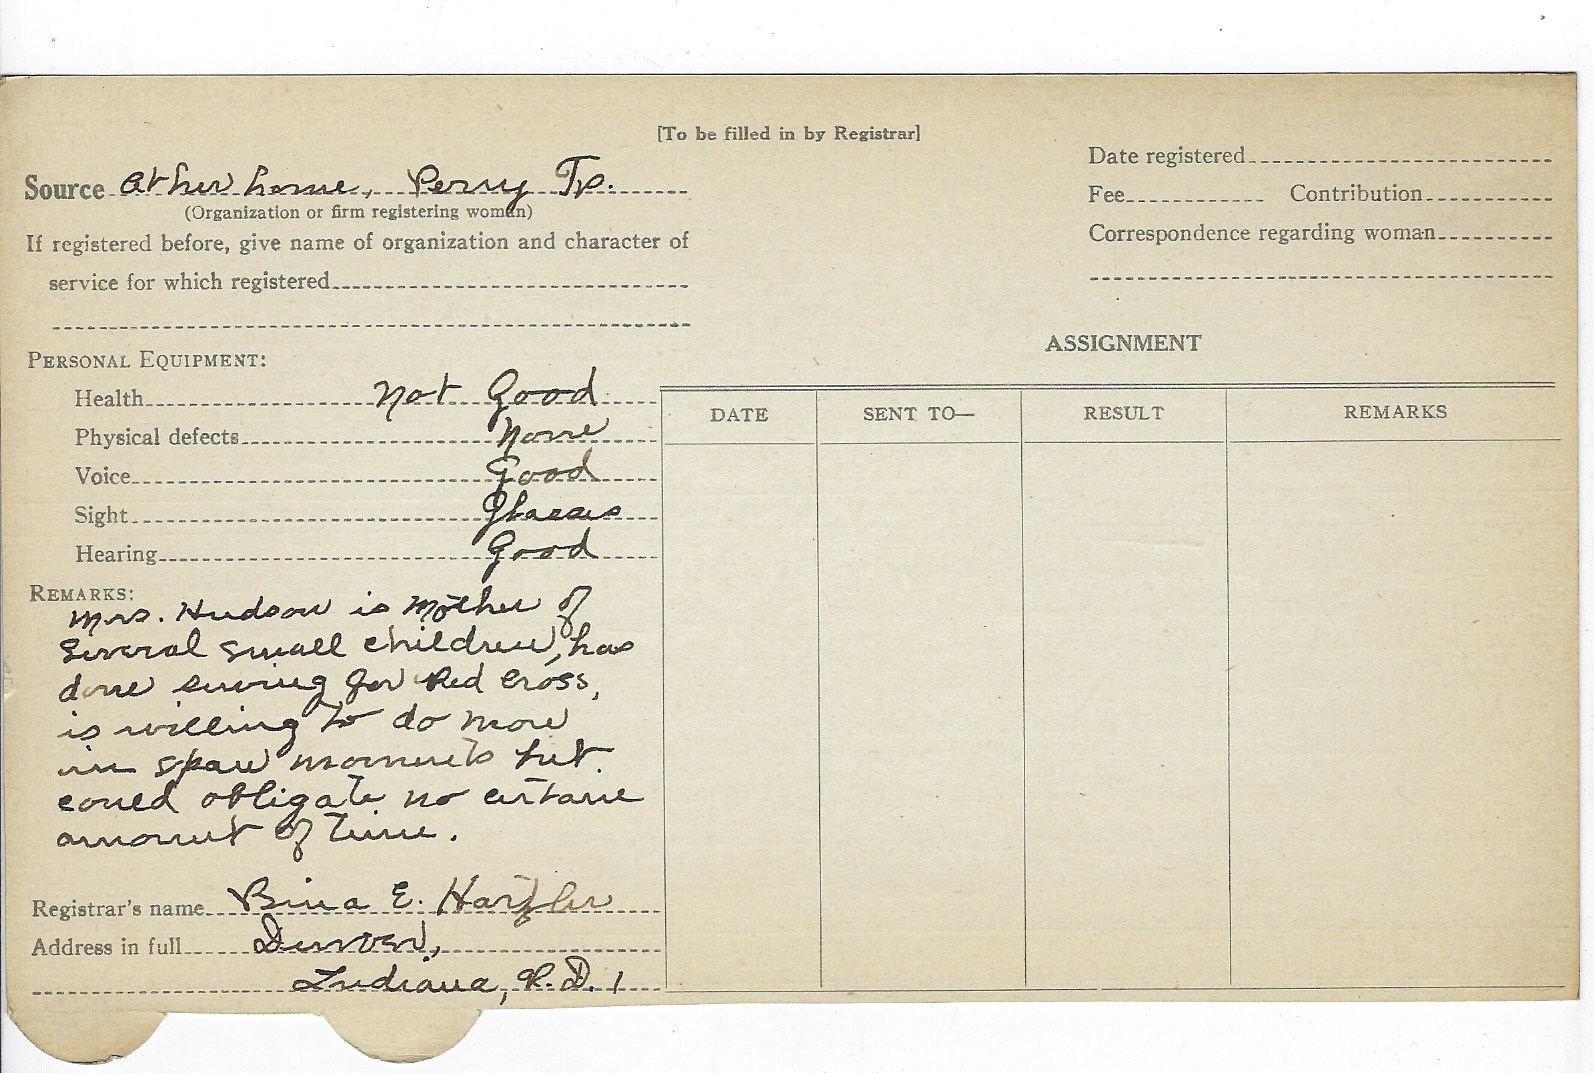 [To be filled in by Registrar]
Source at her home, Perry Tp.
(Organization or firm registering woman)
If registered before, give name of organization and character of
service for which registered
Date registered
Fee Contribution
Correspondence regarding woman
PERSONAL EQUIPMENT:
Health not Good
Physical defects None
Voice Good
Sight Glasses
Hearing Good
REMARKS:
Mrs. Hudson is Mother of
Several small children, has
done sewing for Red Cross,
is willing to do more
in spare moments but
could obligate no certain
amount of time.
Registrar's name Bina E. Hartzler
Address in full Denver,
Indiana, R.D. 1
ASSIGNMENT
DATE SENT TO— RESULT REMARKS